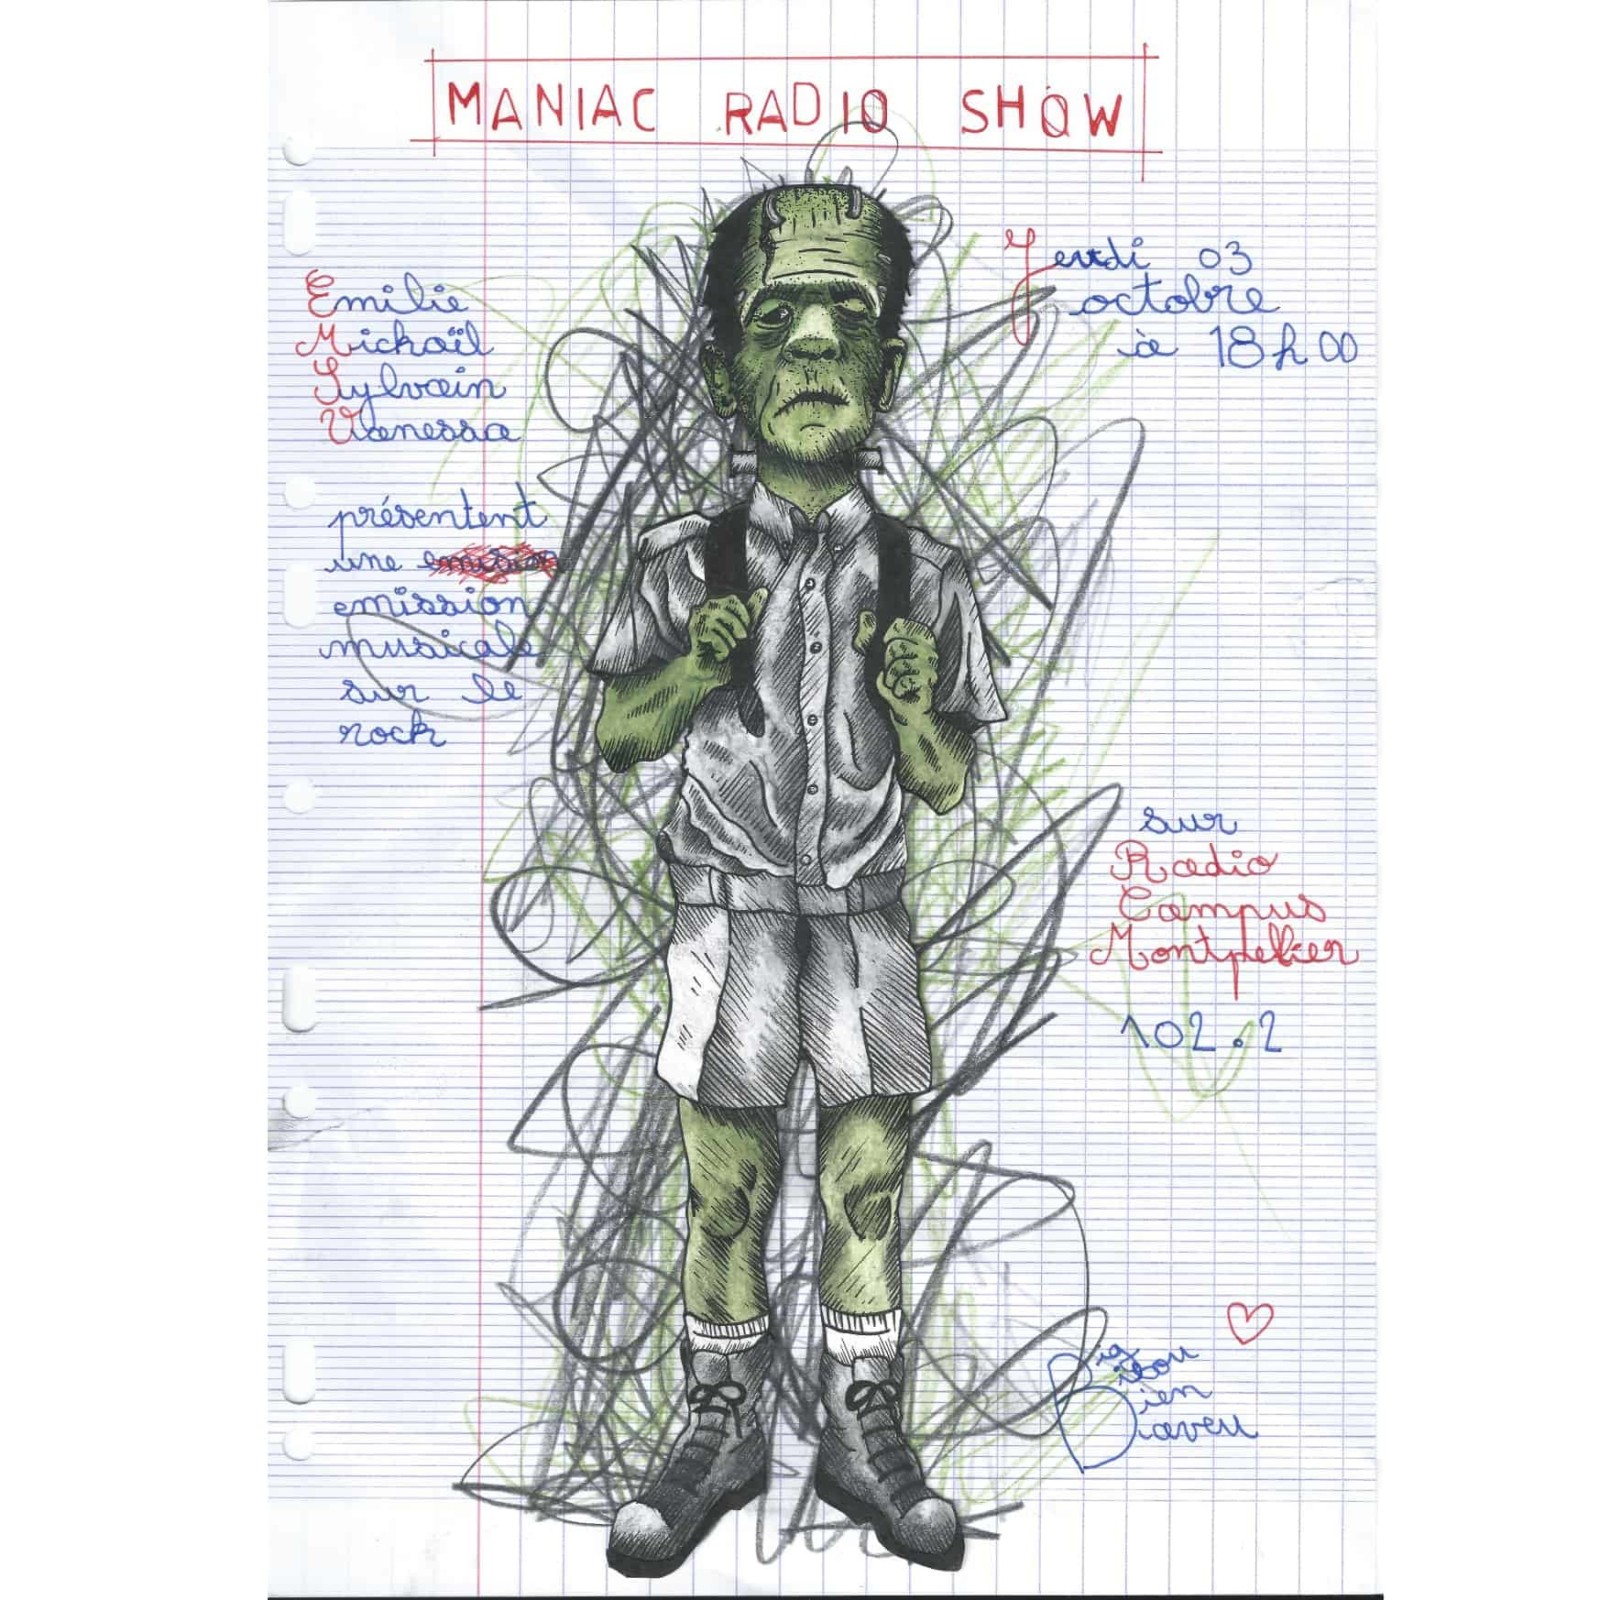 MANIAC RADIO SHOW
Emilie
Mickaïl
Sylvain
Vanessa
présentent
une emision
emission
musicale
sur le
rock
Jeudi 03
octobre
à 18h00
sur
Radio
Campus
Montpellier
102.2
Big
isou
ien
baveu